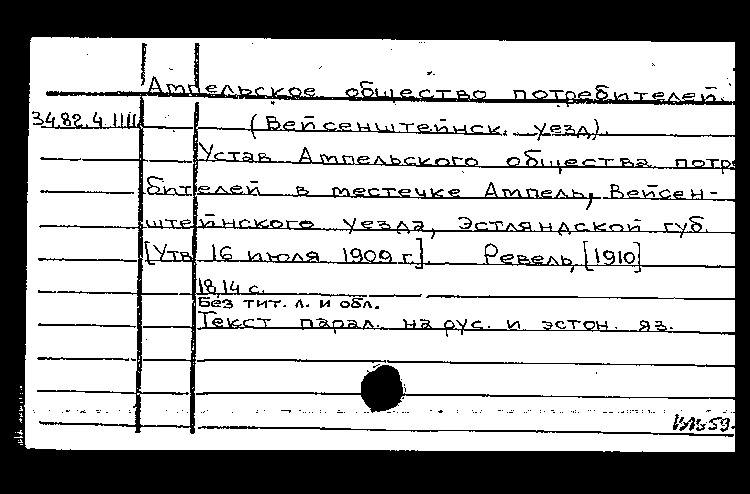 Ампельское общество потребителей.
34.82.4.1111
(Вейсенштейнск. уезд).
Устав Ампельского общества потре
бителей в местечке Ампель, Вейсен-
штейнского уезда, Эстляндской губ.
[Утв 16 июля 1909 г.] Ревель, [1910]
18,14 с.
Без тит. л. и обл.
Текст парал. на рус. и эстон. яз.